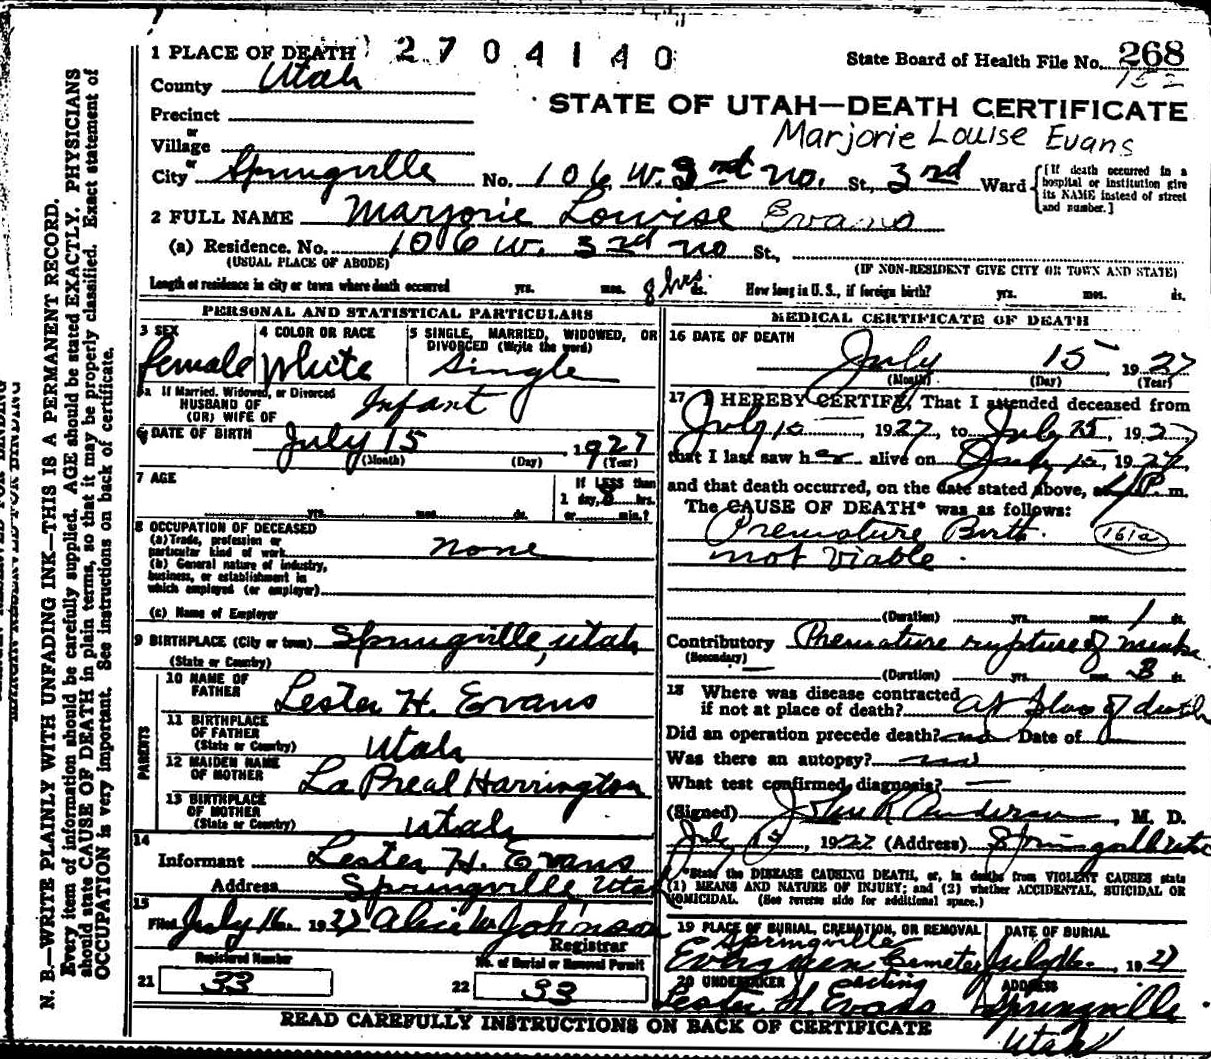 1 PLACE OF DEATH 2704140
State Board of Health File No. 268
152
County Utah
STATE OF UTAH—DEATH CERTIFICATE
Precinct
or
Marjorie Louise Evans
Village
or
City Springville No. 106 W. 3rd no. St., 3rd Ward
[If death occurred in a
hospital or institution give
its NAME instead of street
and number.]
2 FULL NAME Marjorie Louise Evans
(a) Residence. No. 106 W. 3rd no St.,
(USUAL PLACE OF ABODE)
(IF NON-RESIDENT GIVE CITY OR TOWN AND STATE)
Length of residence in city or town where death occurred yrs. mos. 8 hrs. ds. How long in U. S., if foreign birth? yrs. mos. ds.
PERSONAL AND STATISTICAL PARTICULARS
3 SEX
female
4 COLOR OR RACE
White
5 SINGLE, MARRIED, WIDOWED, OR
DIVORCED (Write the word)
Single
5a If Married, Widowed, or Divorced
HUSBAND OF
(OR) WIFE OF
Infant
6 DATE OF BIRTH July 15, 1927
(Month) (Day) (Year)
7 AGE
yrs. mos. ds.
If LESS than
1 day, 8 hrs.
or min.?
8 OCCUPATION OF DECEASED
(a) Trade, profession or
particular kind of work none
(b) General nature of industry,
business, or establishment in
which employed (or employer)
(c) Name of Employer
9 BIRTHPLACE (City or town) Springville, Utah
(State or Country)
PARENTS
10 NAME OF
FATHER
Lester H. Evans
11 BIRTHPLACE
OF FATHER
(State or Country)
Utah
12 MAIDEN NAME
OF MOTHER
La Preal Harrington
13 BIRTHPLACE
OF MOTHER
(State or Country)
Utah
14
Informant Lester H. Evans
Address Springville Utah
15
Filed July 16. 1927 Alice W. Johnson
Registrar
Registered Number
21 33
No. of Burial or Removal Permit
22 33
MEDICAL CERTIFICATE OF DEATH
16 DATE OF DEATH
July 15 1927
(Month) (Day) (Year)
17 I HEREBY CERTIFY, That I attended deceased from
July 15, 1927, to July 15, 1927,
that I last saw her alive on July 15, 1927,
and that death occurred, on the date stated above, at 4 P. m.
The CAUSE OF DEATH* was as follows:
Premature Birth. 161a
not Viable.
(Duration) yrs. mos. 1 ds.
Contributory Premature rupture of
(Secondary)
(Duration) yrs. mos. ds.
18 Where was disease contracted
if not at place of death? at place of death
Did an operation precede death? no Date of
Was there an autopsy? no
What test confirmed diagnosis? —
(Signed) John R Anderson, M. D.
July 15, 1927 (Address) Springville Utah
*State the DISEASE CAUSING DEATH, or, in deaths from VIOLENT CAUSES state
(1) MEANS AND NATURE OF INJURY; and (2) whether ACCIDENTAL, SUICIDAL OR
HOMICIDAL. (See reverse side for additional space.)
19 PLACE OF BURIAL, CREMATION, OR REMOVAL
Springville
Evergreen Cemetery
DATE OF BURIAL
July 16. 1927
20 UNDERTAKER acting
Lester H. Evans
ADDRESS
Springville
Utah
READ CAREFULLY INSTRUCTIONS ON BACK OF CERTIFICATE
N. B.—WRITE PLAINLY WITH UNFADING INK—THIS IS A PERMANENT RECORD.
Every item of information should be carefully supplied. AGE should be stated EXACTLY. PHYSICIANS
should state CAUSE OF DEATH in plain terms, so that it may be properly classified. Exact statement of
OCCUPATION is very important. See instructions on back of certificate.